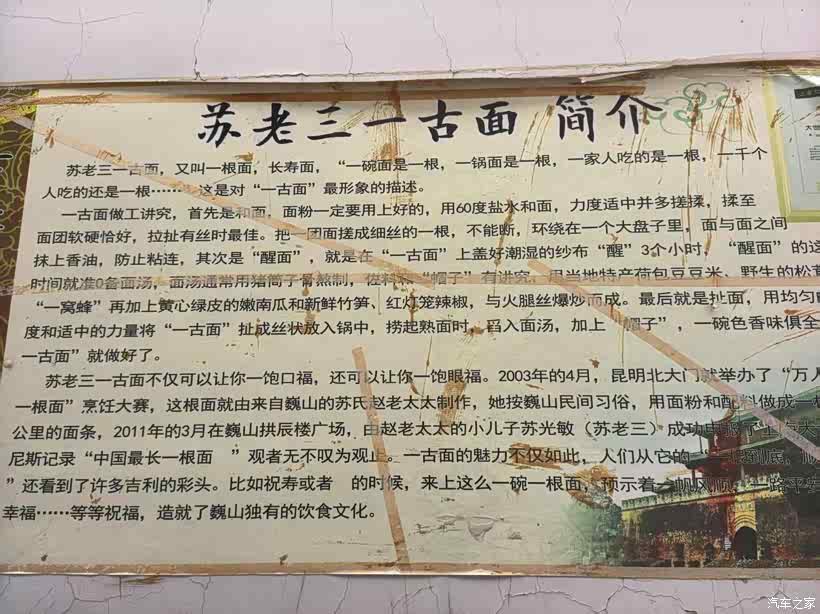 苏老三一古面 简介
苏老三一古面，又叫一根面，长寿面，“一碗面是一根，一锅面是一根，一家人吃的是一根，一千个
人吃的还是一根……，这是对“一古面”最形象的描述。
一古面做工讲究，首先是和面，面粉一定要用上好的，用60度盐水和面，力度适中并多搓揉，揉至
面团软硬恰好，拉扯有丝时最佳。把一团面搓成细丝的一根，不能断，环绕在一个大盘子里，面与面之间
抹上香油，防止粘连，其次是“醒面”，就是在“一古面”上盖好潮湿的纱布“醒”3个小时，“醒面”的这
时间就准备面汤，面汤通常用猪筒子骨熬制，佐料 “帽子”有讲究，用当地特产荷包豆豆米、野生的松茸
“一窝蜂”再加上黄心绿皮的嫩南瓜和新鲜竹笋、红灯笼辣椒，与火腿丝爆炒而成。最后就是扯面，用均匀
度和适中的力量将“一古面”扯成丝状放入锅中，捞起熟面时，舀入面汤，加上“帽子”，一碗色香味俱全
一古面”就做好了。
苏老三一古面不仅可以让你一饱口福，还可以让你一饱眼福。2003年的4月，昆明北大门就举办了“万人
一根面”烹饪大赛，这根面就由来自巍山的苏氏赵老太太制作，她按巍山民间习俗，用面粉和配料做成一根
公里的面条，2011年的3月在巍山拱辰楼广场，由赵老太太的小儿子苏光敏（苏老三）成功申报了
尼斯记录“中国最长一根面 ”观者无不叹为观止。一古面的魅力不仅如此，人们从它的“ 到底，
”还看到了许多吉利的彩头。比如祝寿或者 的时候，来上这么一碗一根面，预示着一帆风顺，一路平安
幸福……等等祝福，造就了巍山独有的饮食文化。
汽车之家